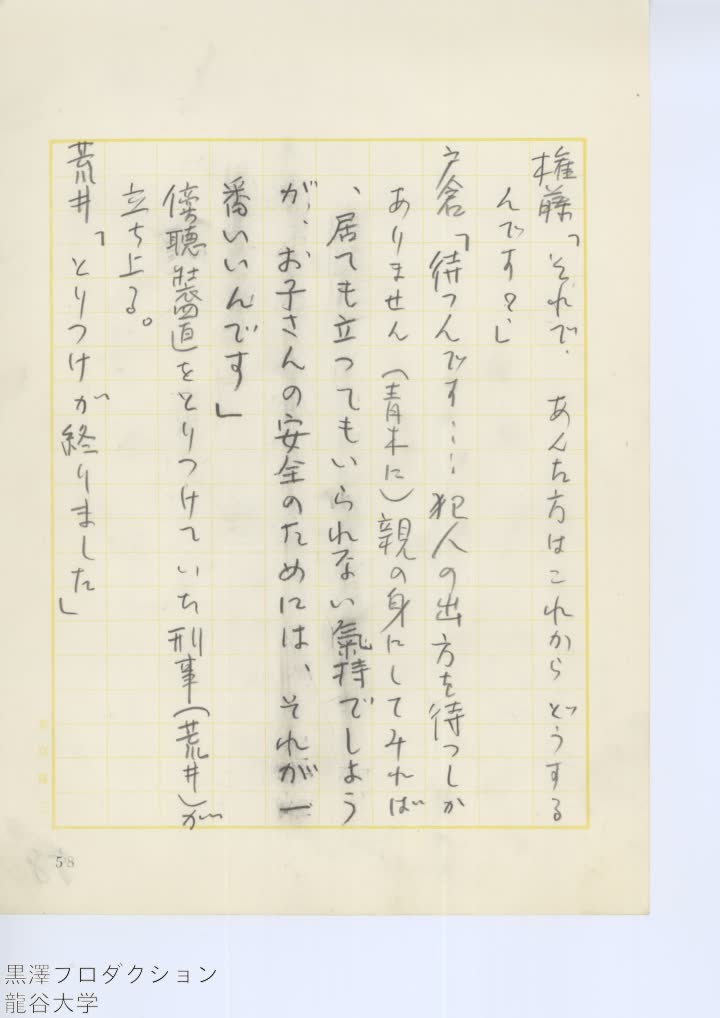 権藤「それで、あんた方はこれからどうする
んです？」
戸倉「待つんです……犯人の出方を待つしか
ありません（青木に）親の身にしてみれば
、居ても立つてもいられない氣持でしよう
が、お子さんの安全のためには、それが一
番いいんです」
傍聴装置をとりつけていた刑事（荒井）が
立ち上る。
荒井「とりつけが終りました」
58
黒澤プロダクション
龍谷大学